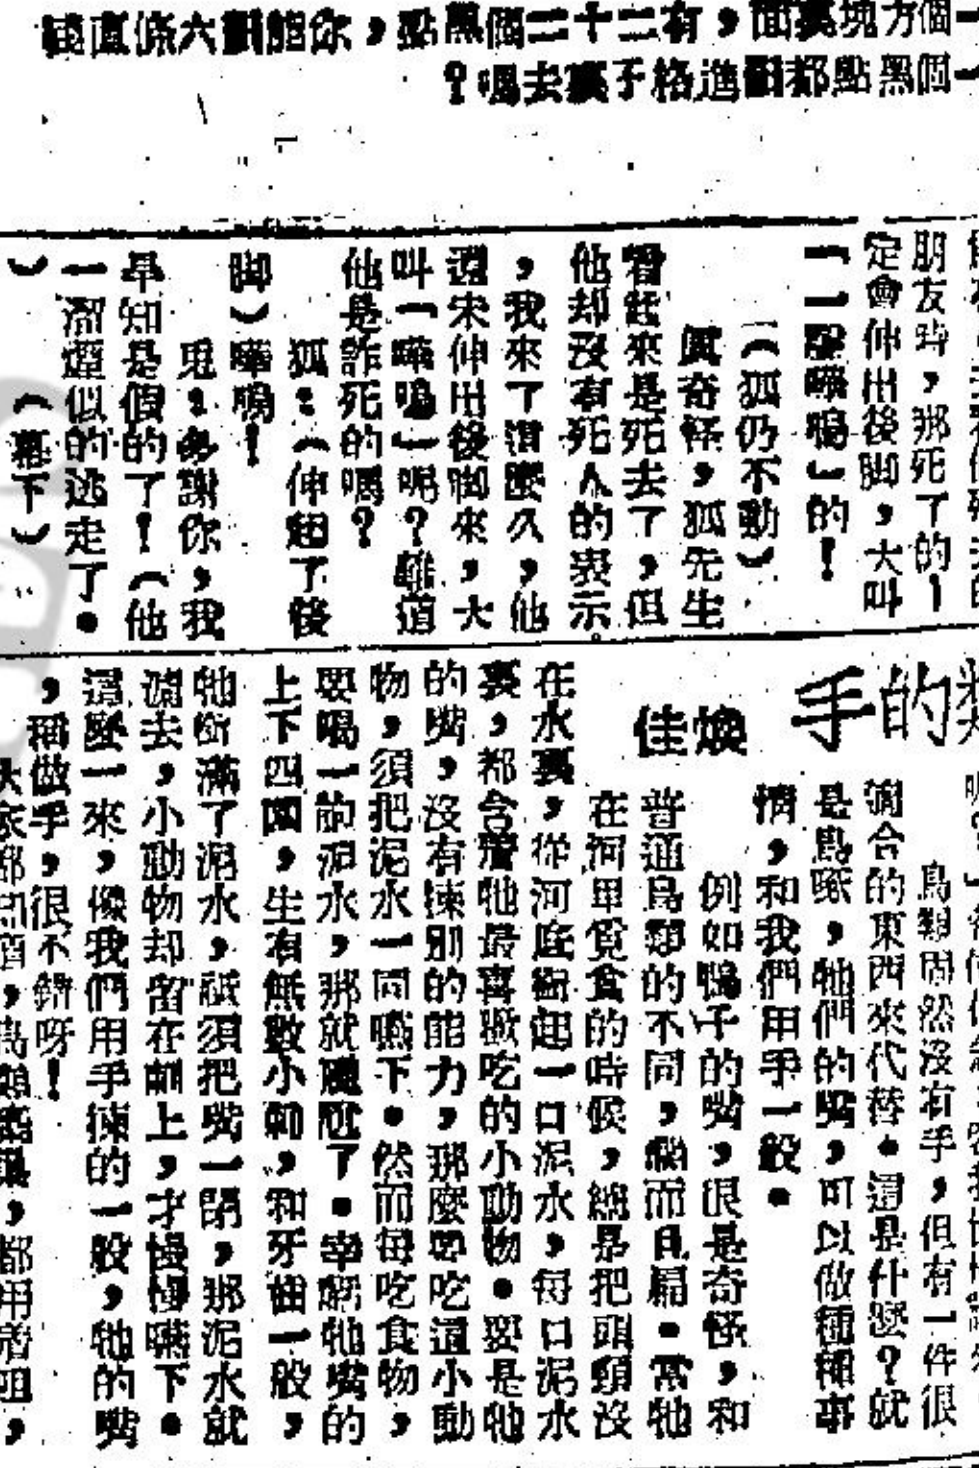 一個方塊裏面，有二十二個黑點，你能劃六條直綫
一個黑點都圍進格子裏去嗎？
朋友時，那死了的一
定會伸出後脚，大叫
「一聲嘩嗚」的！
（狐仍不動）
眞奇怪，狐先生
看起來是死去了，但
他却沒有死人的表示。
，我來了這麼久，他
還未伸出後脚來，大
叫「嘩嗚」呢？難道
他是詐死的嗎？
狐：（伸起了後
脚）嘩嗚！
兎：多謝你，我
早知是假的了！（他
一溜煙似的逃走了。
）（幕下）
的手
煥佳
鳥類固然沒有手，但有一件很
適合的東西來代替。這是什麼？就
是鳥啄，牠們的嘴，可以做種種事
情，和我們用手一般。
例如鴨子的嘴，很是奇怪，和
普通鳥類的不同，濶而且扁。當牠
在河里覓食的時候，總是把頭頸沒
在水裏，從河底銜起一口泥水，每口泥水
裏，都含着牠最喜歡吃的小動物。要是牠
的嘴，沒有揀別的能力，那麼要吃這小動
物，須把泥水一同嚥下。然而每吃食物，
要喝一肚泥水，那就尷尬了。幸虧牠嘴的
上下四圍，生有無數小刺，和牙齒一般，
牠銜滿了泥水，祗須把嘴一閉，那泥水就
濾去，小動物却留在刺上，才慢慢嚥下。
這麼一來，像我們用手揀的一般，牠的嘴
，稱做手，很不錯呀！
大家都知道，鳥類築巢，都用着咀，